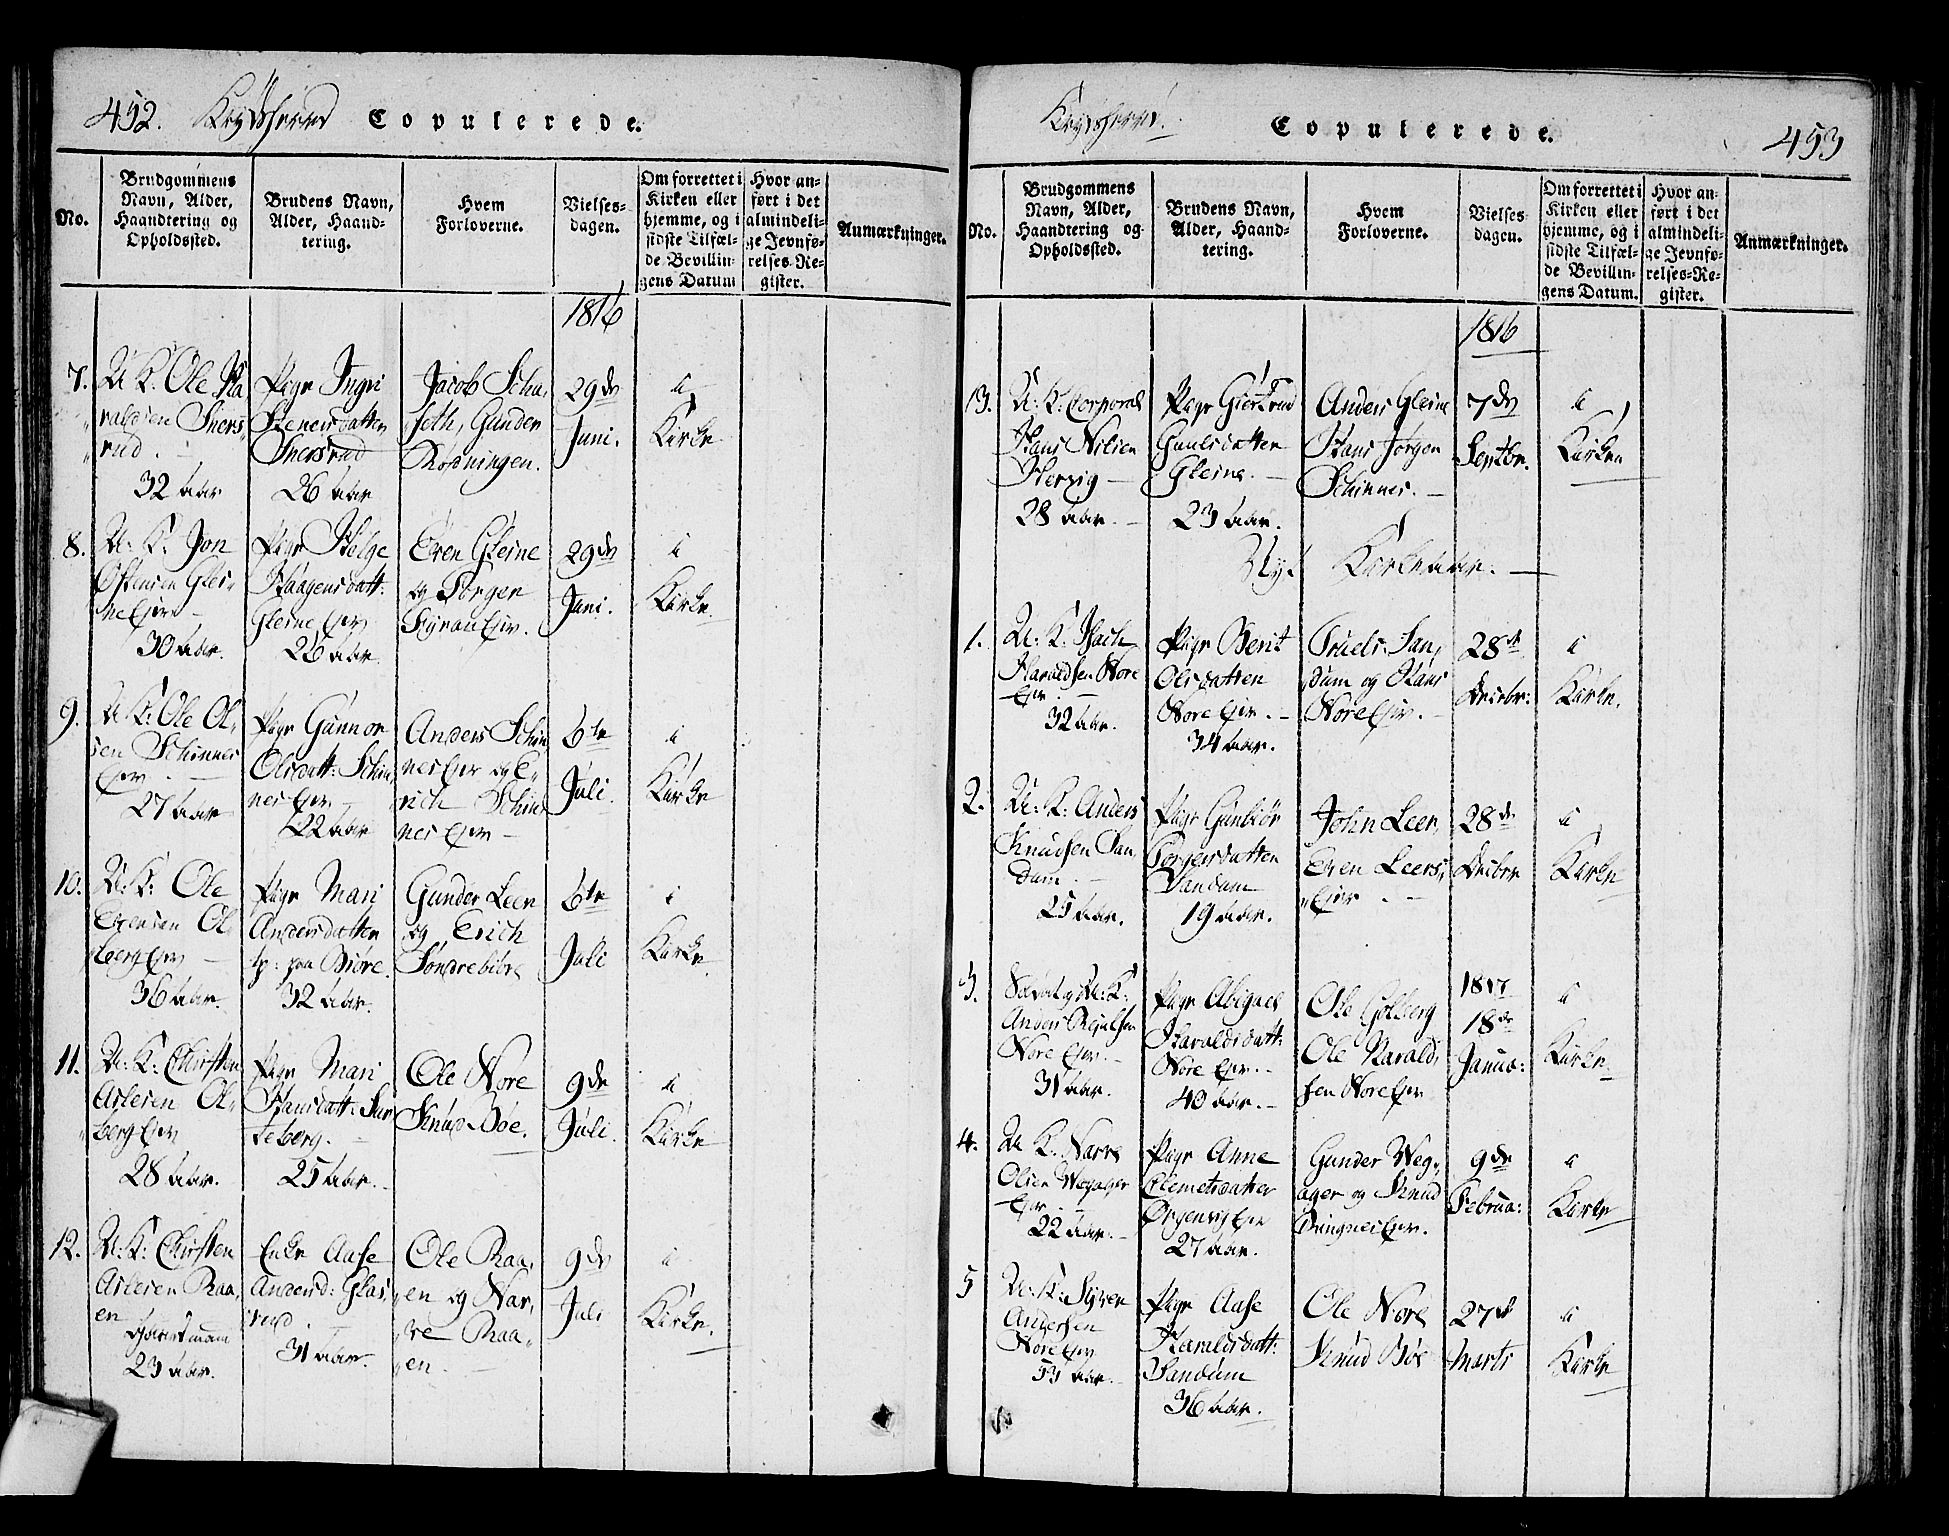 452. Krydsherred Copulerede.
No.
Brudgommens Navn, Alder, Haandtering og Opholdssted.
Brudens Navn, Alder, Haandtering.
Hvem Forloverne.
Vielsesdagen.
Om forrettet i Kirken eller hjemme, og i sidste Tilfælde Bevillingens Datum
Hvor anført i det almindelige Jevnførelses-Register.
Anmærkninger.
1816
7.
U. K. Ole
raldsen Sners
rud.
32 aar
Pige Ingri
Stenersdatter
Snersrud
26 aar
Jacob Scha
seth, Gunder
Rodningen.
29de
Juni.
i
Kirke
8.
U: K: Jon
Ostensen Glei
ne Eier
30 aar.
Pige Helge
Haagensdatt:
Gleine Eier
26 aar
Even Gleine
og Torger
29de
Juni.
i
Kirke.
9.
U K: Ole Ol
sen Schinnes
Eier
27 aar
Pige Gunnor
Olsdatt: Schin
nes Eier
22 aar
Anders Schin
nes Eier og E
rich Schin
nes Eier
6te
Juli.
i
Kirke
10.
U: K: Ole
Evensen Ol
berg Eier
36 aar
Pige Mari
Andersdatter
32 aar.
Gunder Leer
og Erich
Sondrebibr
6te
Juli
i
Kirke
11.
U: K: Christen
Aslesen Ol
berg Eier
28 aar.
Pige Mari
Hansdatt:
teberg.
25 aar.
Ole Nore
Knud Bøe.
9de
Juli.
i
Kirke
12.
U: K: Christen
Aslesen Raa
en
23 aar.
Enke Aase
Andersd: Glas
rud.
31 aar.
Ole Raa
en og Nar
ve Raa
en.
9de
Juli
i
Kirke.
Krydsherred. Copulerede. 453
No.
Brudgommens Navn, Alder, Haandtering og Opholdssted.
Brudens Navn, Alder, Haandtering.
Hvem Forloverne.
Vielsesdagen.
Om forrettet i Kirken eller hjemme, og i sidste Tilfælde Bevillingens Datum.
Hvor anført i det almindelige Jevnførelses-Register.
Anmærkninger.
1816
13.
U: K: Corporal
Hans Nilsen
Herzig
28 aar.
Pige Giertrud
Guulsdatter
Gleine.
23 aar.
Anders Gleine
Hans Jørgen
Schinnes.
7de
Septbr.
i
Kirken
Nyt Kirkeaar.
1.
U: K. Isach
Haraldsen Nore
Eier.
32 aar.
Pige Berit
Olsdatter
Nore Eier.
34 aar.
Truels San
dum og Hans
Nore Eier.
28de
Decbr:
i
Kirke.
2.
U: K: Anders
Knudsen San
dum.
25 aar.
Pige Gunbiør
Torgersdatter
Sandum
19 aar.
John Leer,
Even Leers
Eier.
28de
Decbr
i
Kirke
3.
Anders
Nore Eier.
31 aar.
Pige Abigael
Haraldsdatt:
Nore Eier.
40 aar.
Ole Golberg
Ole Harald
sen Nore Eier
1817
18de
Janua:
i
Kirke.
4.
U K: Narve
Olsen Wegager
Eier.
22 aar.
Pige Anne
Clemetsdatter
27 aar.
Gunder Weg
ager og Knud
Bringnes Eier.
9de
Februa:
i
Kirke
5
U: K: Syver
Andersen
Nore Eier
53 aar.
Pige Aase
Haraldsdatt:
Sandum
36 aar.
Ole Nore
Knud Bøe
27de
Marts
i
Kirke